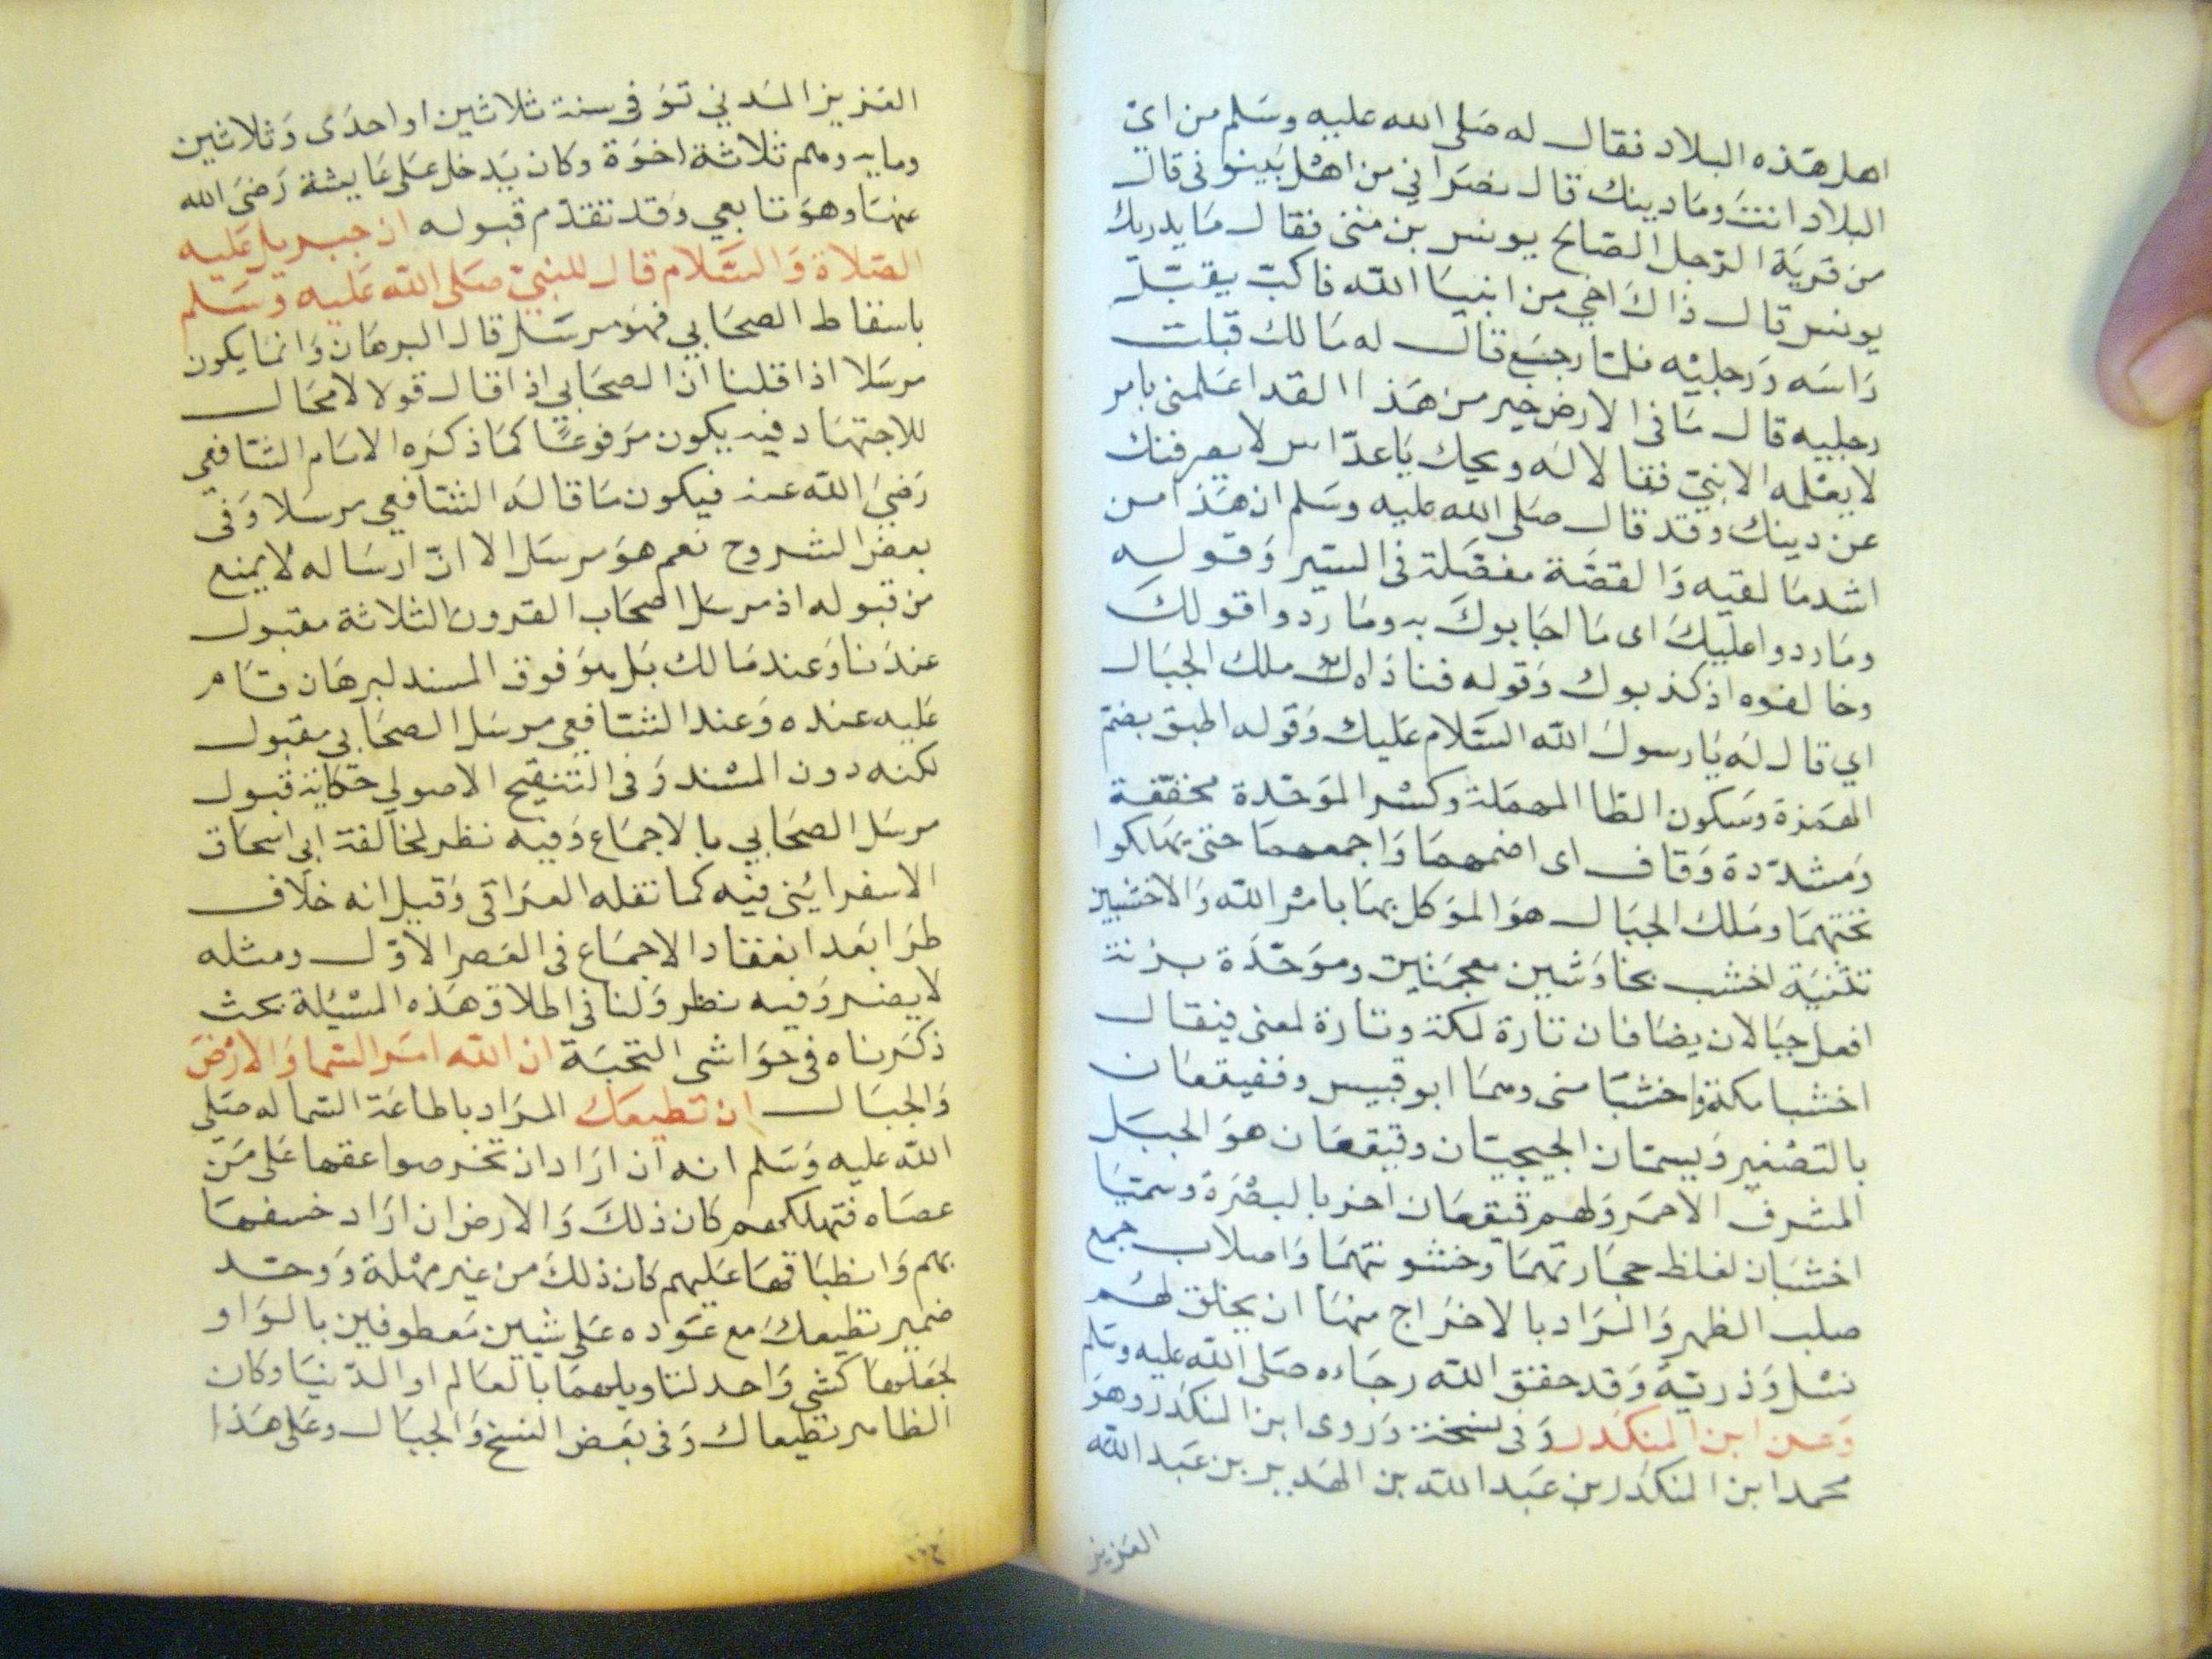 اهل هذه البلاد فقال له صلى الله عليه وسلم من اي
البلاد انت وما دينك قال نصراني من اهل نينوى قال
من قرية الرجل الصالح يونس بن متى فقال ما يدريك
يونس قال ذاك اخي من انبيا الله فاكب يقبل
راسه ورجليه فلما رجع قال له مالك قبلت
رجليه قال ما فى الارض خير من هذا لقد اعلمنى بامر
لا يعلمه الا نبي فقالا له ويحك يا عداس لا يصرفنك
عن دينك وقد قال صلى الله عليه وسلم ان هذا من
اشد ما لقيه والقصة مفصلة فى السير وقوله
وما ردوا عليك اى ما اجابوك به وما ردوا قولك
وخالفوه اذ كذبوك وقوله فناداه ملك الجبال
اي قال له يا رسول الله السلام عليك وقوله اطبق بضم
الهمزة وسكون الطا المهملة وكسر الموحدة مخففة
ومشددة وقاف اى اضمهما واجمعهما حتى يهلكوا
تحتهما وملك الجبال هو الموكل بها بامر الله والاخشبين
تثنية اخشب بخا وشين معجمتين وموحدة بزنة
افعل جبلان يضافان تارة لمكة وتارة لمعنى فيقال
اخشبا مكة واخشبا منى وهما ابو قبيس وقعيقعان
بالتصغير ويسميان الجبجبان وقيقعان هو الجبل
المشرف الاحمر ولهم قيقعان اخر بالبصرة وسميا
اخشبان لغلظ حجارتهما وخشونتهما واصلاب جمع
صلب الظهر والمراد بالاخراج منها ان يخلق لهم
نسل وذرية وقد حقق الله رجاءه صلى الله عليه وسلم
وعن ابن المنكدر وفى نسخة وروى ابن المنكدر وهو
محمد ابن المنكدر بن عبد الله بن الهدير بن عبد الله
العزيز
العزيز المدني توفى سنة ثلاثين او احدى وثلاثين
ومايه وهم ثلاثة اخوة وكان يدخل على عايشة رضى الله
عنها وهو تابعي وقد تقدم قبوله ان جبريل عليه
الصلاة والسلام قال للنبي صلى الله عليه وسلم
باسقاط الصحابي فهو مرسل قال البرهان وانما يكون
مرسلا اذا قلنا ان الصحابي اذا قال قولا لا مجال
للاجتهاد فيه يكون مرفوعا كما ذكره الامام الشافعي
رضى الله عنه فيكون ما قاله الشافعي مرسلا وفى
بعض الشروح نعم هو مرسل الا ان ارساله لا يمنع
من قبوله اذ مرسل اصحاب القرون الثلاثة مقبول
عندنا وعند مالك بل هو فوق المسند لبرهان قام
عليه عنده وعند الشافعي مرسل الصحابي مقبول
لكنه دون المسند وفى التنقيح الاصولي حكاية قبول
مرسل الصحابي بالاجماع وفيه نظر لمخالفة ابي اسحاق
الاسفرائنى فيه كما نقله العراقى وقيل انه خلاف
طرا بعد انعقاد الاجماع فى العصر الاول ومثله
لا يضر وفيه نظر ولنا فى اطلاق هذه المسئلة بحث
ذكرناه فى حواشى النخبة ان الله امر السما والارض
والجبال ان تطيعك المراد باطاعة السما له صلى
الله عليه وسلم انه ان اراد ان تخر صواعقها على من
عصاه فتهلكهم كان ذلك والارض ان اراد خسفها
بهم وانطباقها عليهم كان ذلك من غير مهلة ووحد
ضمير تطيعك مع عوده على شيين معطوفين بالواو
لجعلها كشى واحد لتاويلهما بالعالم او الدنيا وكان
الظاهر تطيعاك وفى بعض النسخ والجبال وعلى هذا